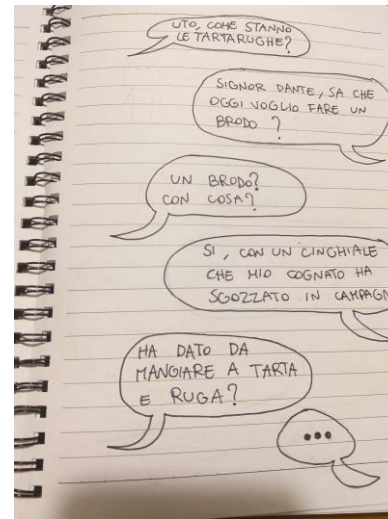 UTO, COME STANNO
LE TARTARUGHE?
SIGNOR DANTE, SA CHE
OGGI VOGLIO FARE UN
BRODO ?
UN BRODO?
CON COSA?
SI, CON UN CINGHIALE
CHE MIO COGNATO HA
SGOZZATO IN CAMPAGN
HA DATO DA
MANGIARE A TARTA
E RUGA?
...